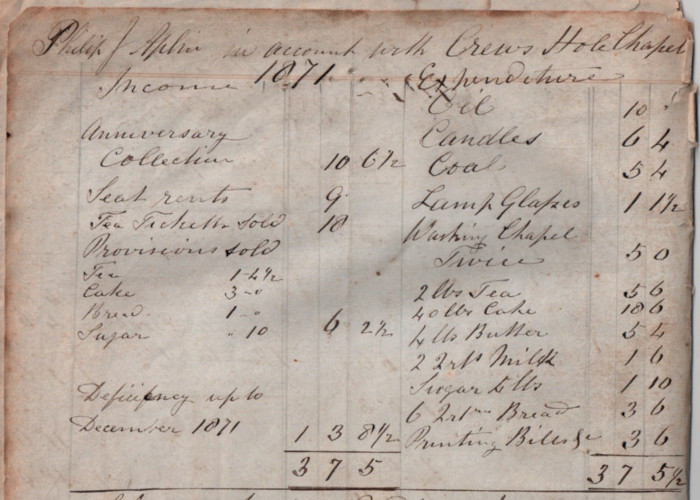 Philip J Aplin in account with Crews Hole Chapel
Income 1871 Expenditure
Oil 10
Anniversary
Collection 10 6½
Candles 6 4
Coal 5 4
Seat rents 9
Lamp Glasses 1 1½
Tea Tickets sold 18
Washing Chapel
Twice 5 0
Provisions sold
Tea 1-4½
Cake 3-0
Bread 1-0
Sugar " 10 6 2½
2 lbs Tea 5 6
40 lbs Cake 18 6
4 lbs Butter 5 4
2 Qrts Milk 1 6
Sugar 5 lbs 1 10
6 Qrtns Bread 3 6
Printing Bills &c 3 6
Deficiency up to
December 1871 1 3 8½
3 7 5
3 7 5½